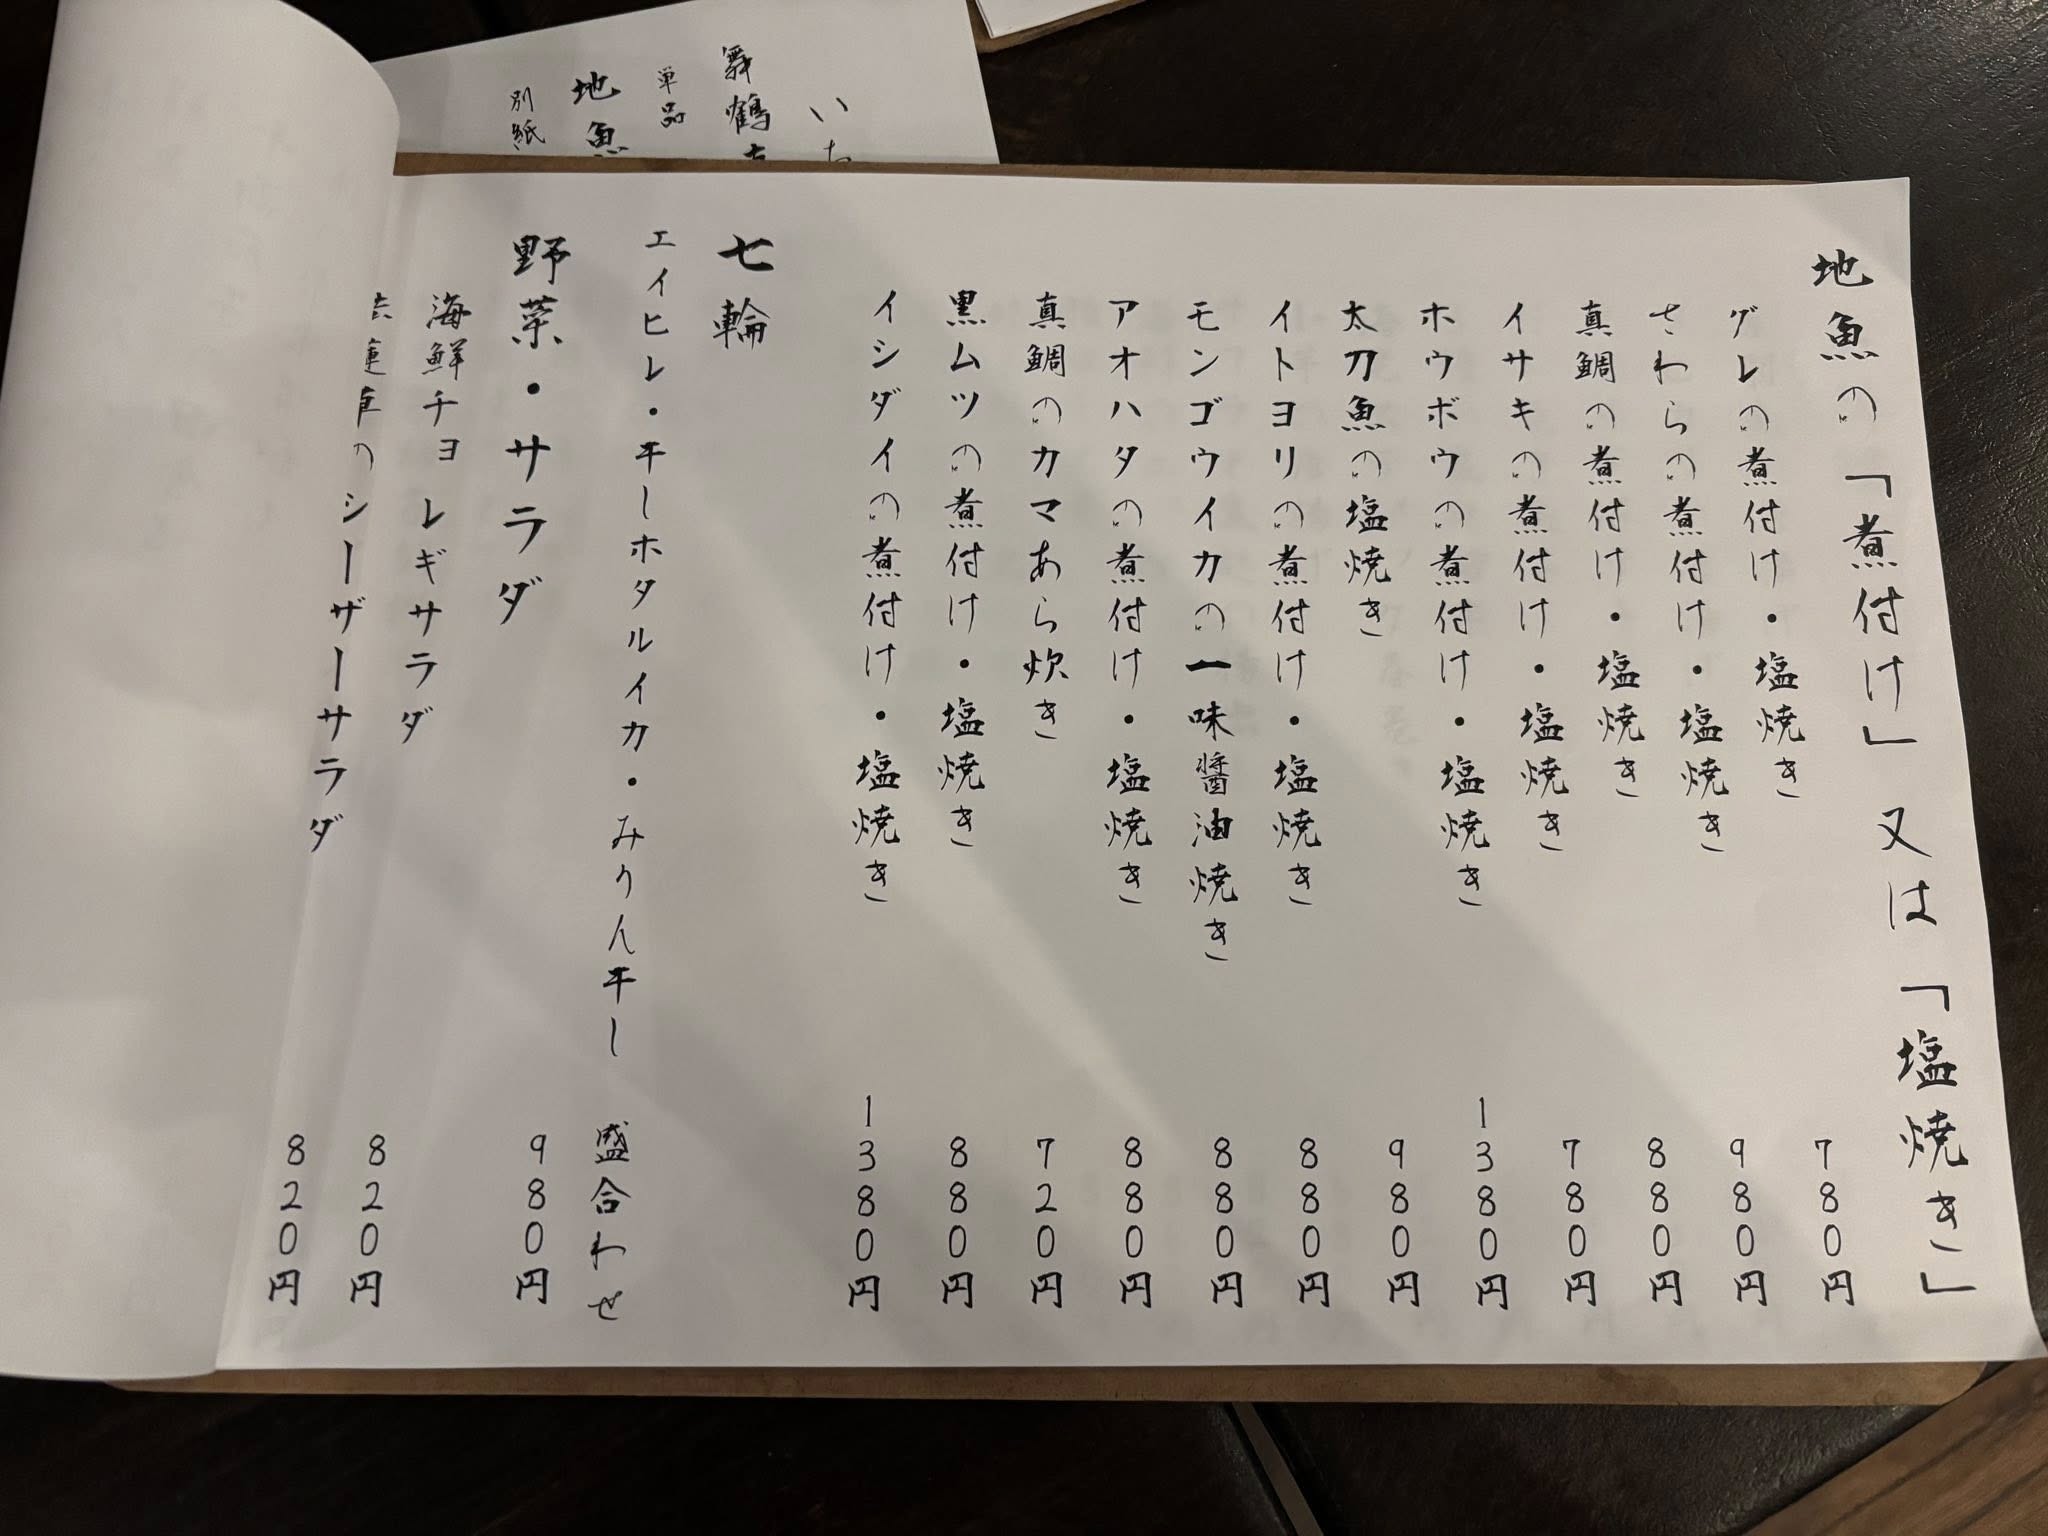 地魚の「煮付け」又は「塩焼き」
グレの煮付け・塩焼き 780円
さわらの煮付け・塩焼き 980円
真鯛の煮付け・塩焼き 880円
イサキの煮付け・塩焼き 780円
ホウボウの煮付け・塩焼き 1380円
太刀魚の塩焼き 980円
イトヨリの煮付け・塩焼き 880円
モンゴウイカの一味醤油焼き 880円
アオハタの煮付け・塩焼き 880円
真鯛のカマあら炊き 720円
黒ムツの煮付け・塩焼き 880円
イシダイの煮付け・塩焼き 1380円
七輪
エイヒレ・干しホタルイカ・みりん干し 盛合わせ
980円
野菜・サラダ
海鮮チョレギサラダ 820円
のシーザーサラダ 820円
舞鶴
単品
地魚
別紙